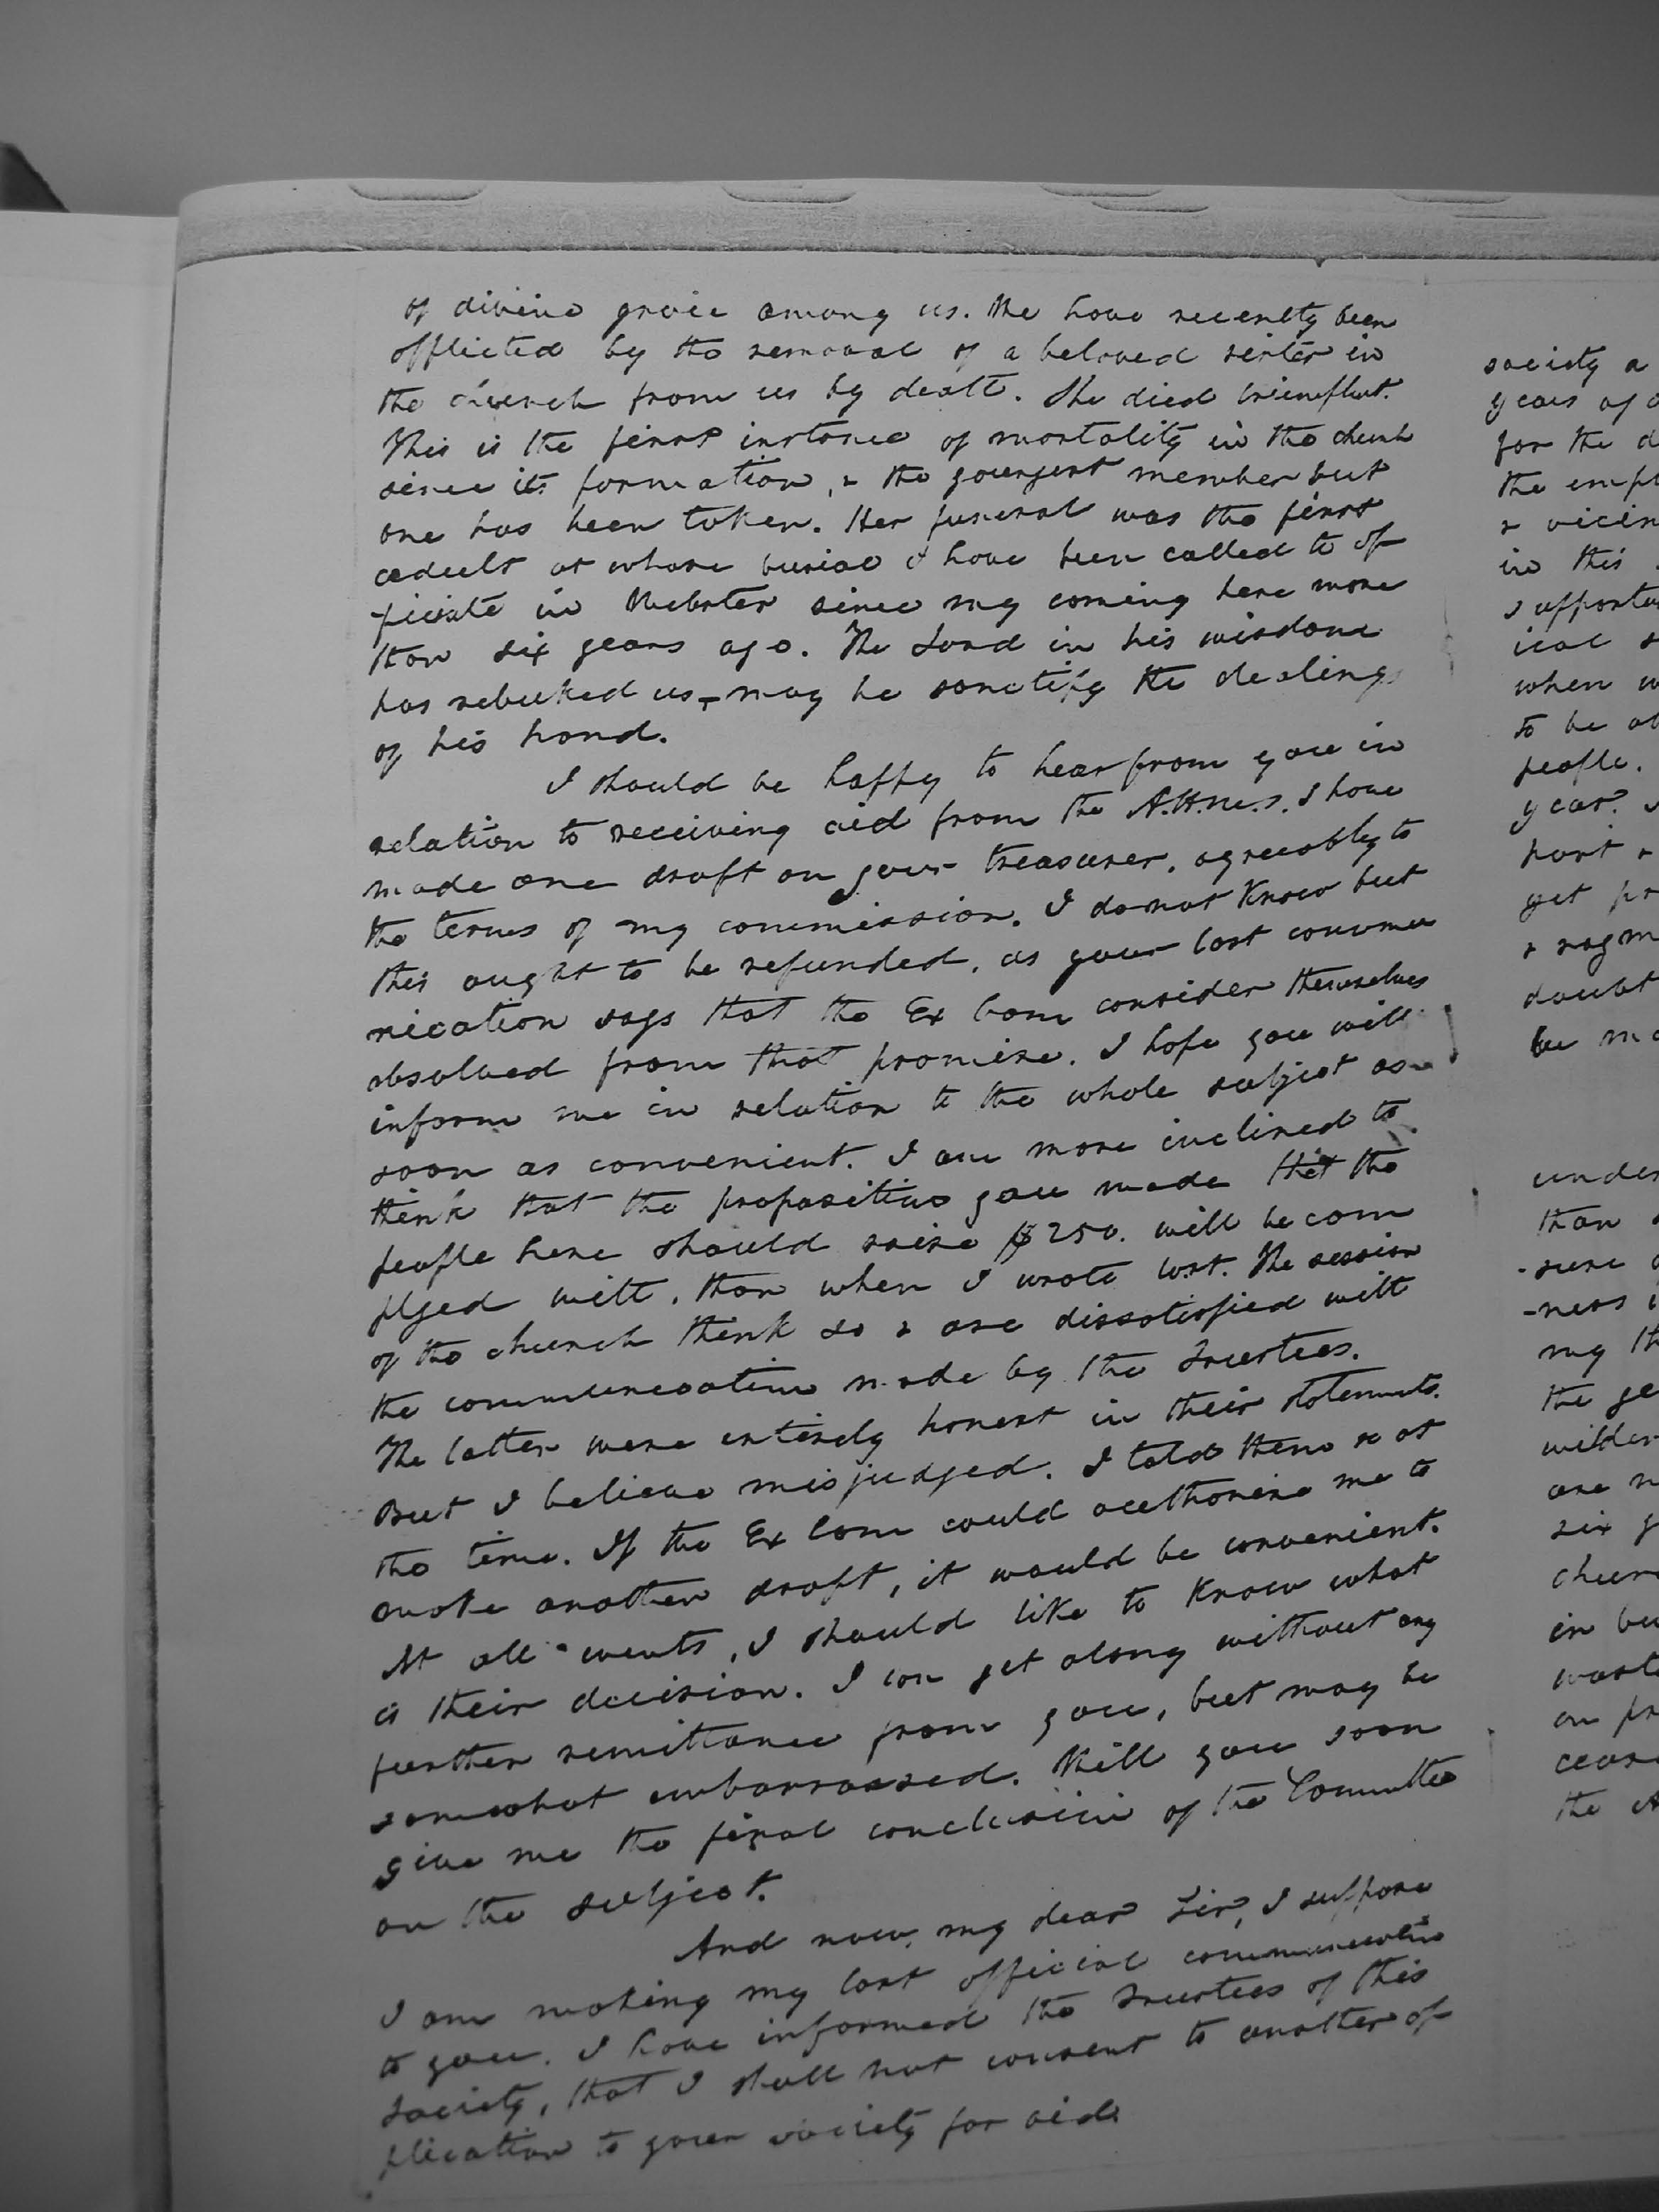 of divine grace among us. We have recently been
afflicted by the removal of a beloved sister in
the church from us by death. She died triumphant.
This is the first instance of mortality in the church
since its formation, & the youngest member but
one has been taken. Her funeral was the first
adult at whose burial I have been called to of-
ficiate in Webster since my coming here more
than six years ago. The Lord in his wisdom
has rebuked us, - may he sanctify the dealings
of his hand.
I should be happy to hear from you in
relation to receiving aid from the A.H.M.S. I have
made one draft on your treasurer, agreeably to
the terms of my commission. I do not know but
this ought to be refunded, as your last commu
nication says that the Ex Com consider themselves
absolved from that promise. I hope you will
inform me in relation to the whole subject as
soon as convenient. I am more inclined to
think that the proposition you made that the
people here should raise $250. will be com
plyed with, than when I wrote last. The session
of the church think so & are dissatisfied with
the communication made by the Trustees.
The latter were entirely honest in their statements.
But I believe misjudged. I told them so at
the time. If the Ex Com could authorise me to
make another draft, it would be convenient.
At all events, I should like to know what
is their decision. I can get along without any
further remittance from you, but may be
somewhat embarrassed. Will you soon
give me the final conclusion of the Committee
on the subject.
And now, my dear Sir, I suppose
I am making my last official communication
to you. I have informed the Trustees of this
Society, that I shall not consent to another ap
plication to your society for aid
society a
years ag
for the d
the empl
& vicin
in this
supporte
ical s
when w
to be ab
people.
year.
port &
yet pr
doubt
be ma
under
than
-sure
-ness
my th
the ge
wilder
are n
six y
chur
in bu
wast
on pr
ceas
the A